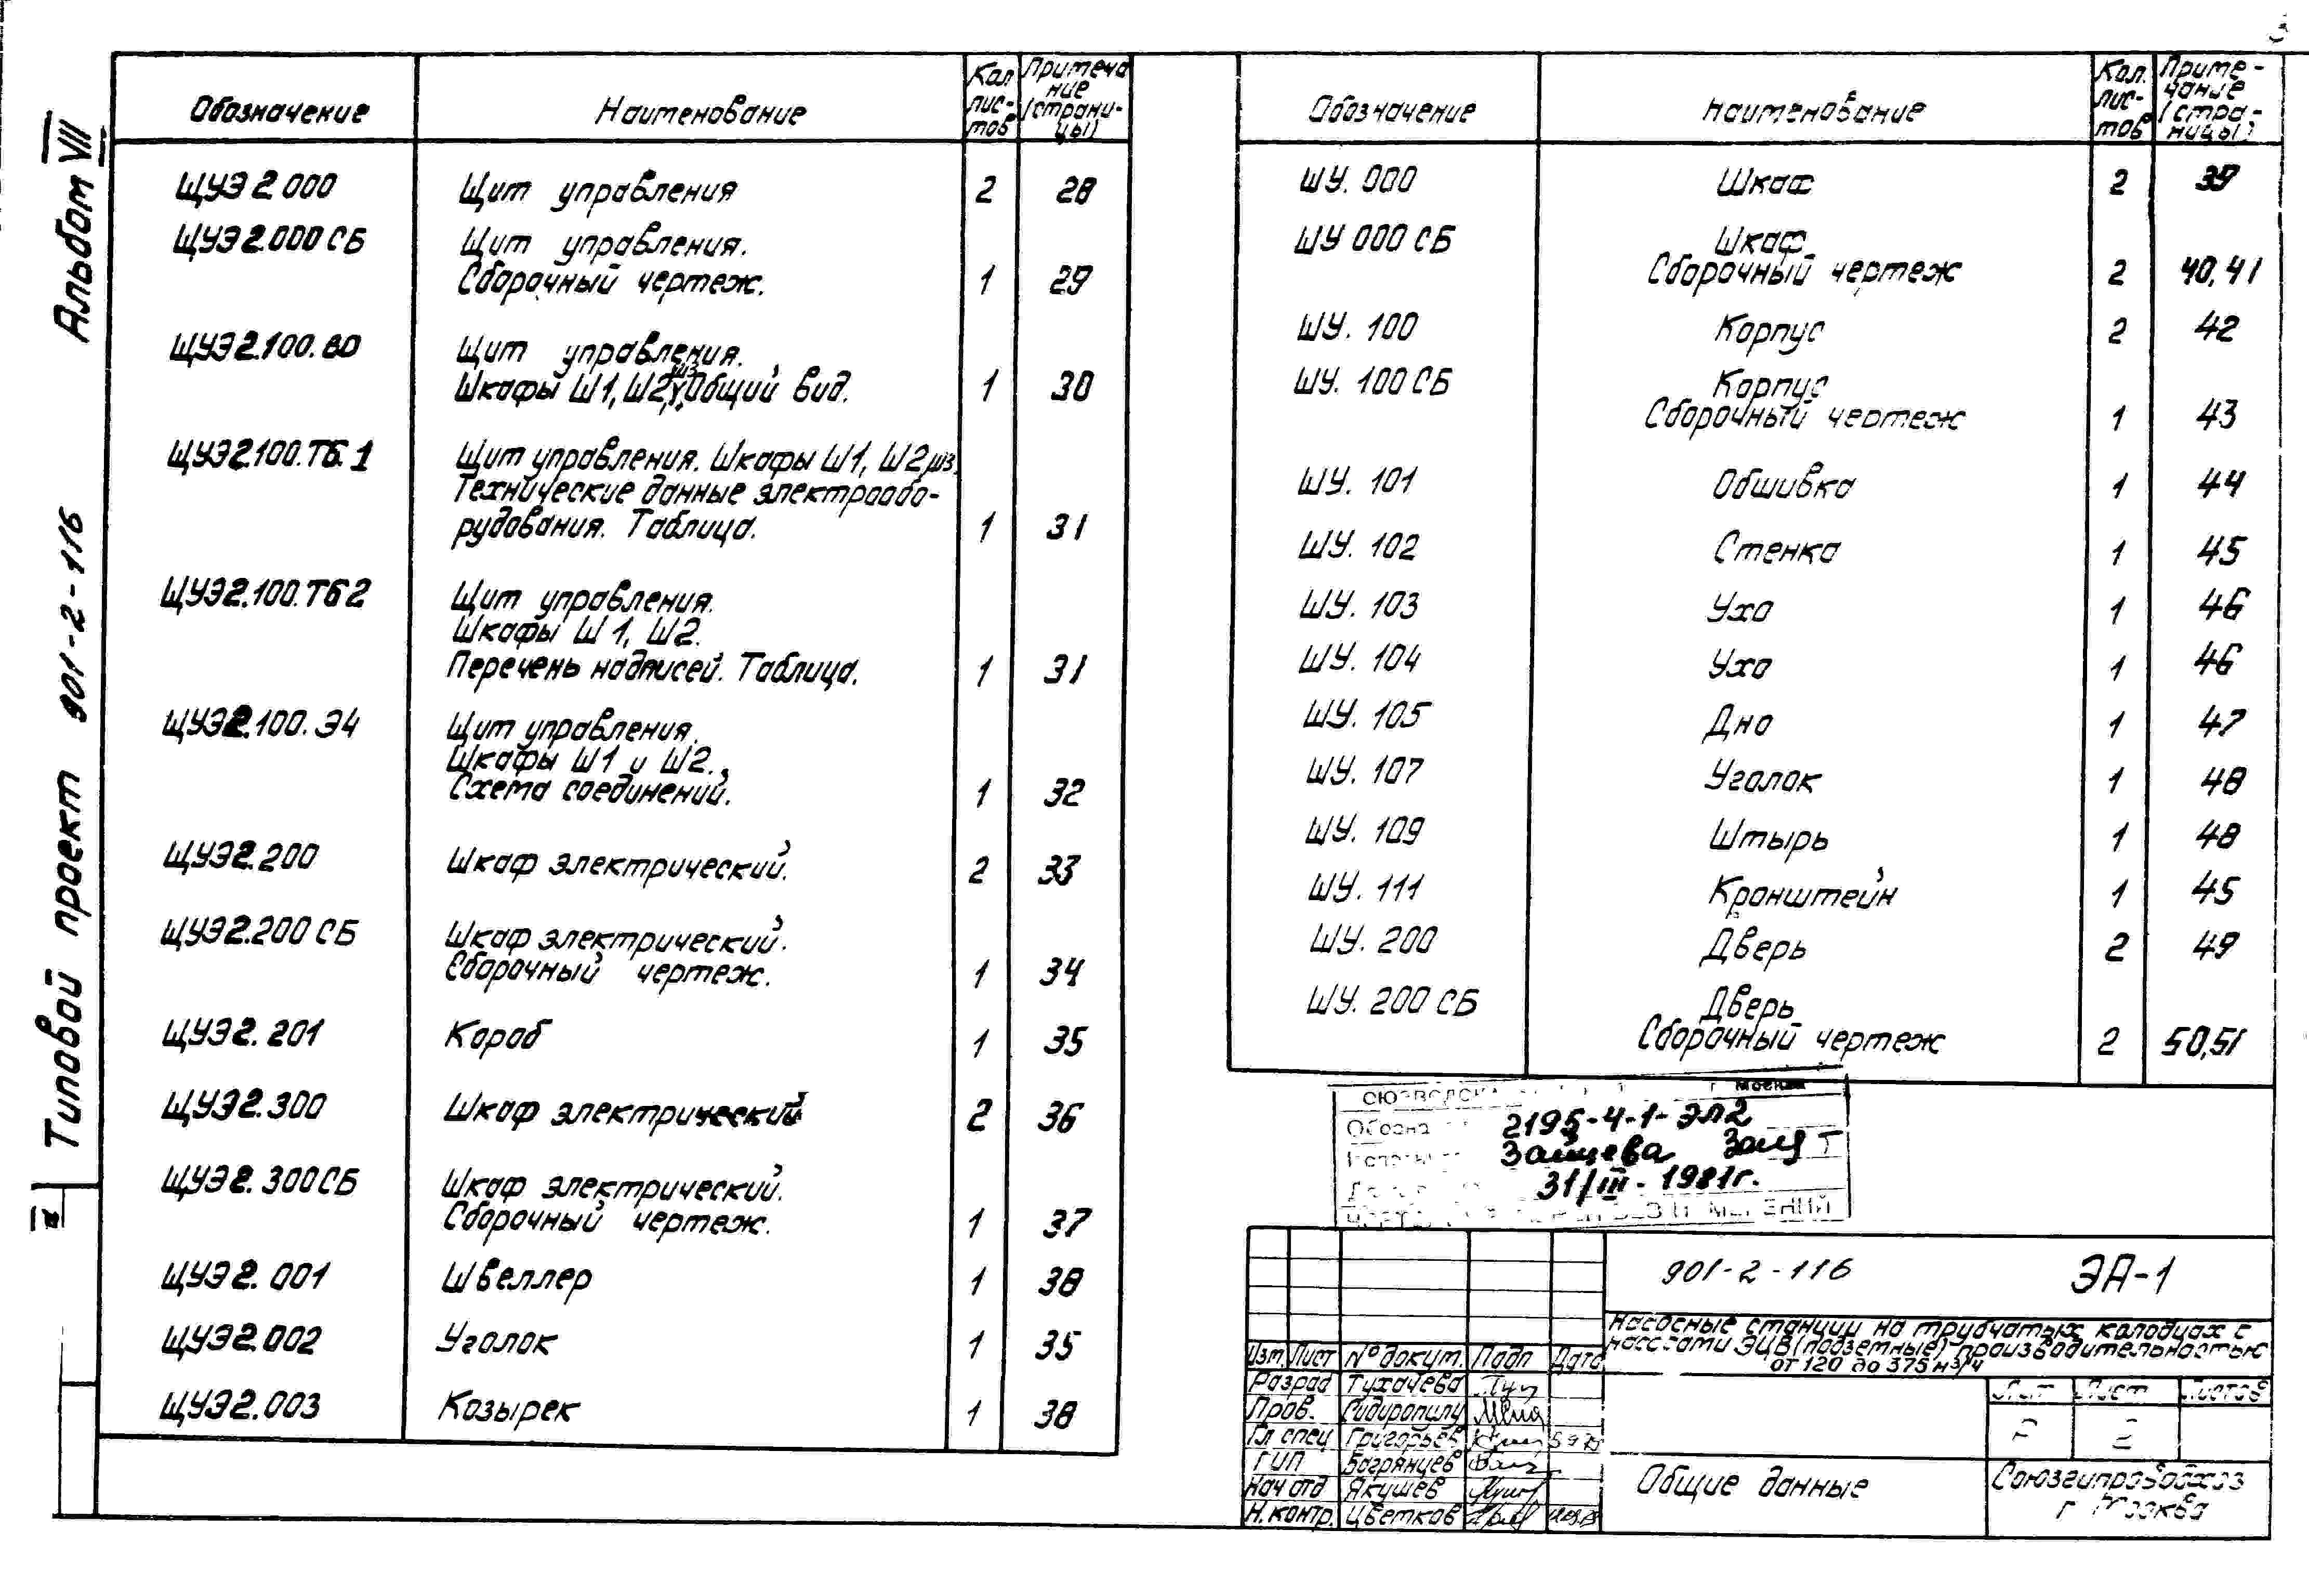 3
Альбом VII
Типовой проект 901-2-116
Обозначение Наименование Кол. листов Примечание (страницы)
ЩУЭ2.000 Щит управления 2 28
ЩУЭ2.000СБ Щит управления.
Сборочный чертеж. 1 29
ЩУЭ2.100.ВО Щит управления.
Шкафы Ш1, Ш2, Ш3. Общий вид. 1 30
ЩУЭ2.100.ТБ.1 Щит управления. Шкафы Ш1, Ш2, Ш3.
Технические данные электрообо-
рудования. Таблица. 1 31
ЩУЭ2.100.ТБ2 Щит управления.
Шкафы Ш1, Ш2.
Перечень надписей. Таблица. 1 31
ЩУЭ2.100.Э4 Щит управления.
Шкафы Ш1 и Ш2.
Схема соединений. 1 32
ЩУЭ2.200 Шкаф электрический. 2 33
ЩУЭ2.200СБ Шкаф электрический.
Сборочный чертеж. 1 34
ЩУЭ2.201 Короб 1 35
ЩУЭ2.300 Шкаф электрический 2 36
ЩУЭ2.300СБ Шкаф электрический.
Сборочный чертеж. 1 37
ЩУЭ2.001 Швеллер 1 38
ЩУЭ2.002 Уголок 1 35
ЩУЭ2.003 Козырек 1 38
Обозначение Наименование Кол. листов Примечание (страницы)
ШУ.000 Шкаф 2 39
ШУ 000 СБ Шкаф
Сборочный чертеж 2 40,41
ШУ.100 Корпус 2 42
ШУ.100СБ Корпус
Сборочный чертеж 1 43
ШУ.101 Обшивка 1 44
ШУ.102 Стенка 1 45
ШУ.103 Ухо 1 46
ШУ.104 Ухо 1 46
ШУ.105 Дно 1 47
ШУ.107 Уголок 1 48
ШУ.109 Штырь 1 48
ШУ.111 Кронштейн 1 45
ШУ.200 Дверь 2 49
ШУ.200СБ Дверь
Сборочный чертеж 2 50,51
г. Москва
2195-4-1-ЭЛ2
Зайцева
31/III-1981г.
901-2-116 ЭА-1
Насосные станции на трубчатых колодцах с
насосами ЭЦВ (подземные) производительностью
от 120 до 375 м3/ч
Изм. Лист № докум. Подп Дата
Разраб Тухачева
Пров.
Гл спец Григорьев
ГИП Багрянцев
Нач отд Якушев
Н.контр. Цветков
Лит Лист Листов
Р 2
Общие данные
Союзгипроводхоз
г Москва